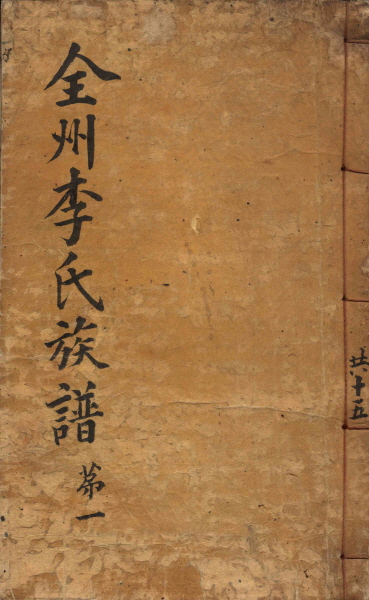 全州李氏族譜 第一
共十五